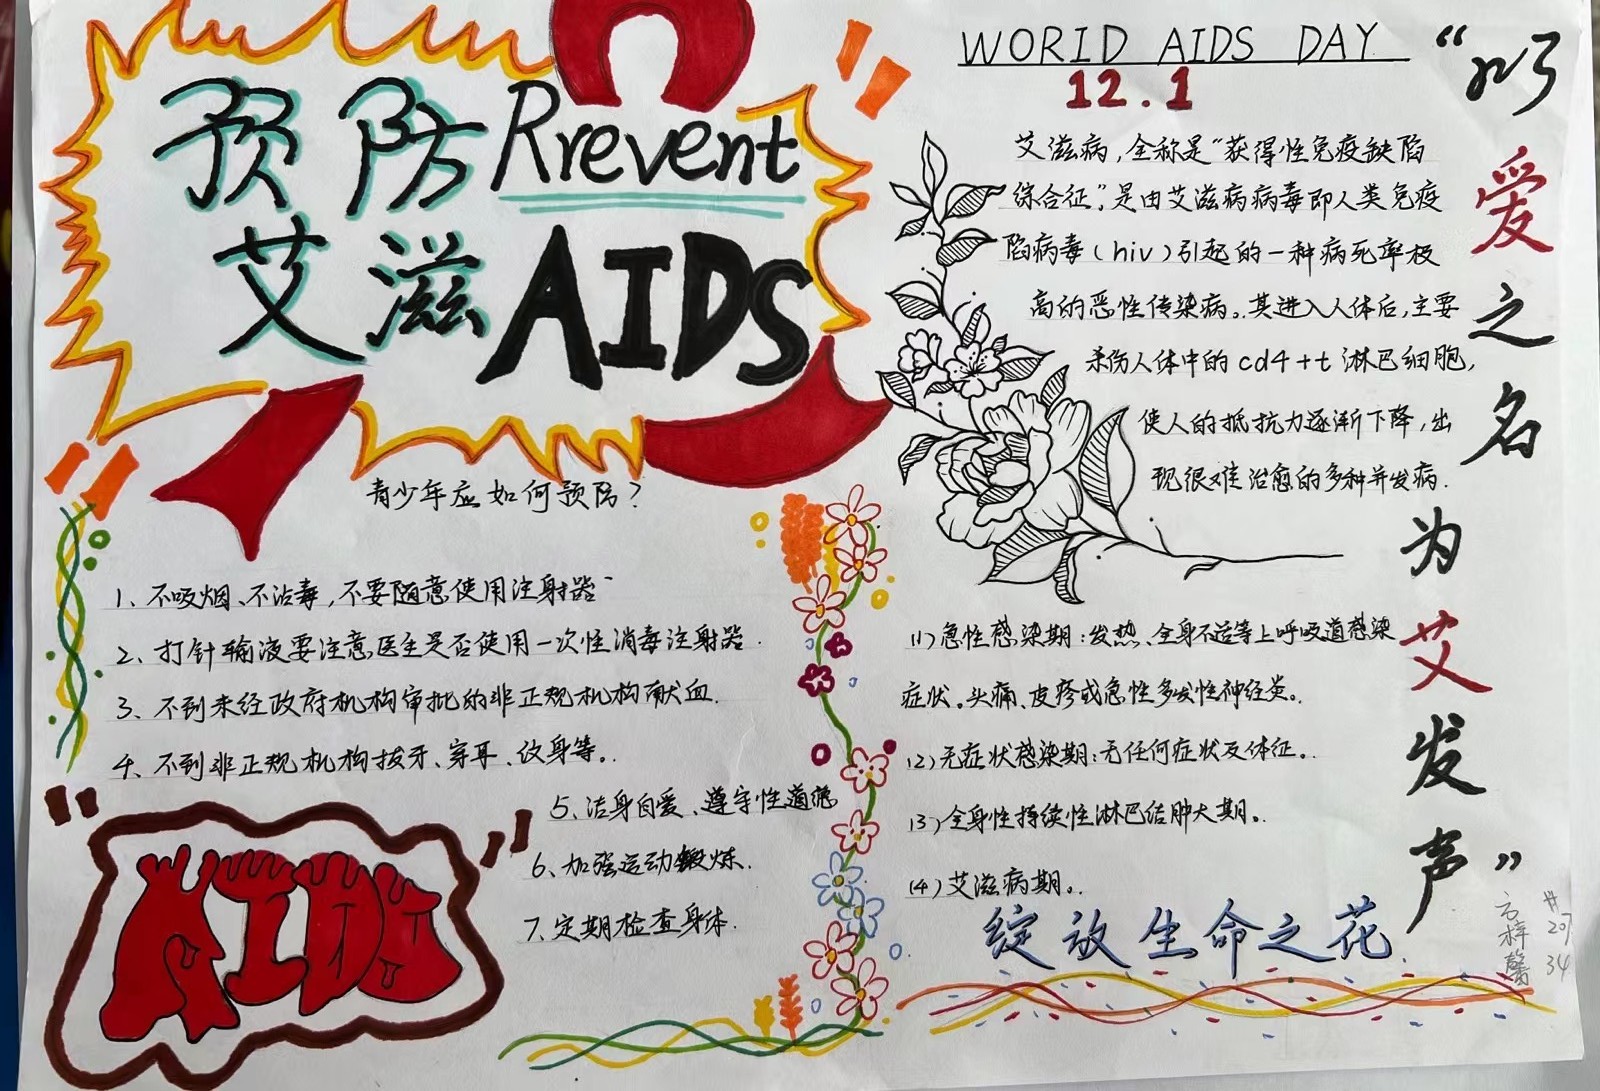 预防 Rrevent
艾滋 AIDS
青少年应如何预防?
1、不吸烟、不沾毒，不要随意使用注射器
2、打针输液要注意医生是否使用一次性消毒注射器.
3、不到未经政府机构审批的非正规机构献血.
4、不到非正规机构拔牙、穿耳、纹身等。
5、洁身自爱、遵守性道德
6、加强运动锻炼.
7、定期检查身体.
AIDS
WORID AIDS DAY
12.1
艾滋病，全称是“获得性免疫缺陷
综合征”，是由艾滋病病毒即人类免疫
陷病毒(hiv)引起的一种病死率极
高的恶性传染病。其进入人体后，主要
杀伤人体中的cd4+t淋巴细胞，
使人的抵抗力逐渐下降，出
现很难治愈的多种并发病.
(1)急性感染期：发热、全身不适等上呼吸道感染
症状。头痛、皮疹或急性多发性神经炎。
(2)无症状感染期：无任何症状及体征。
(3)全身性持续性淋巴结肿大期。
(4)艾滋病期。
绽放生命之花
“以爱之名
为艾发声”
方梓馨
#207
34